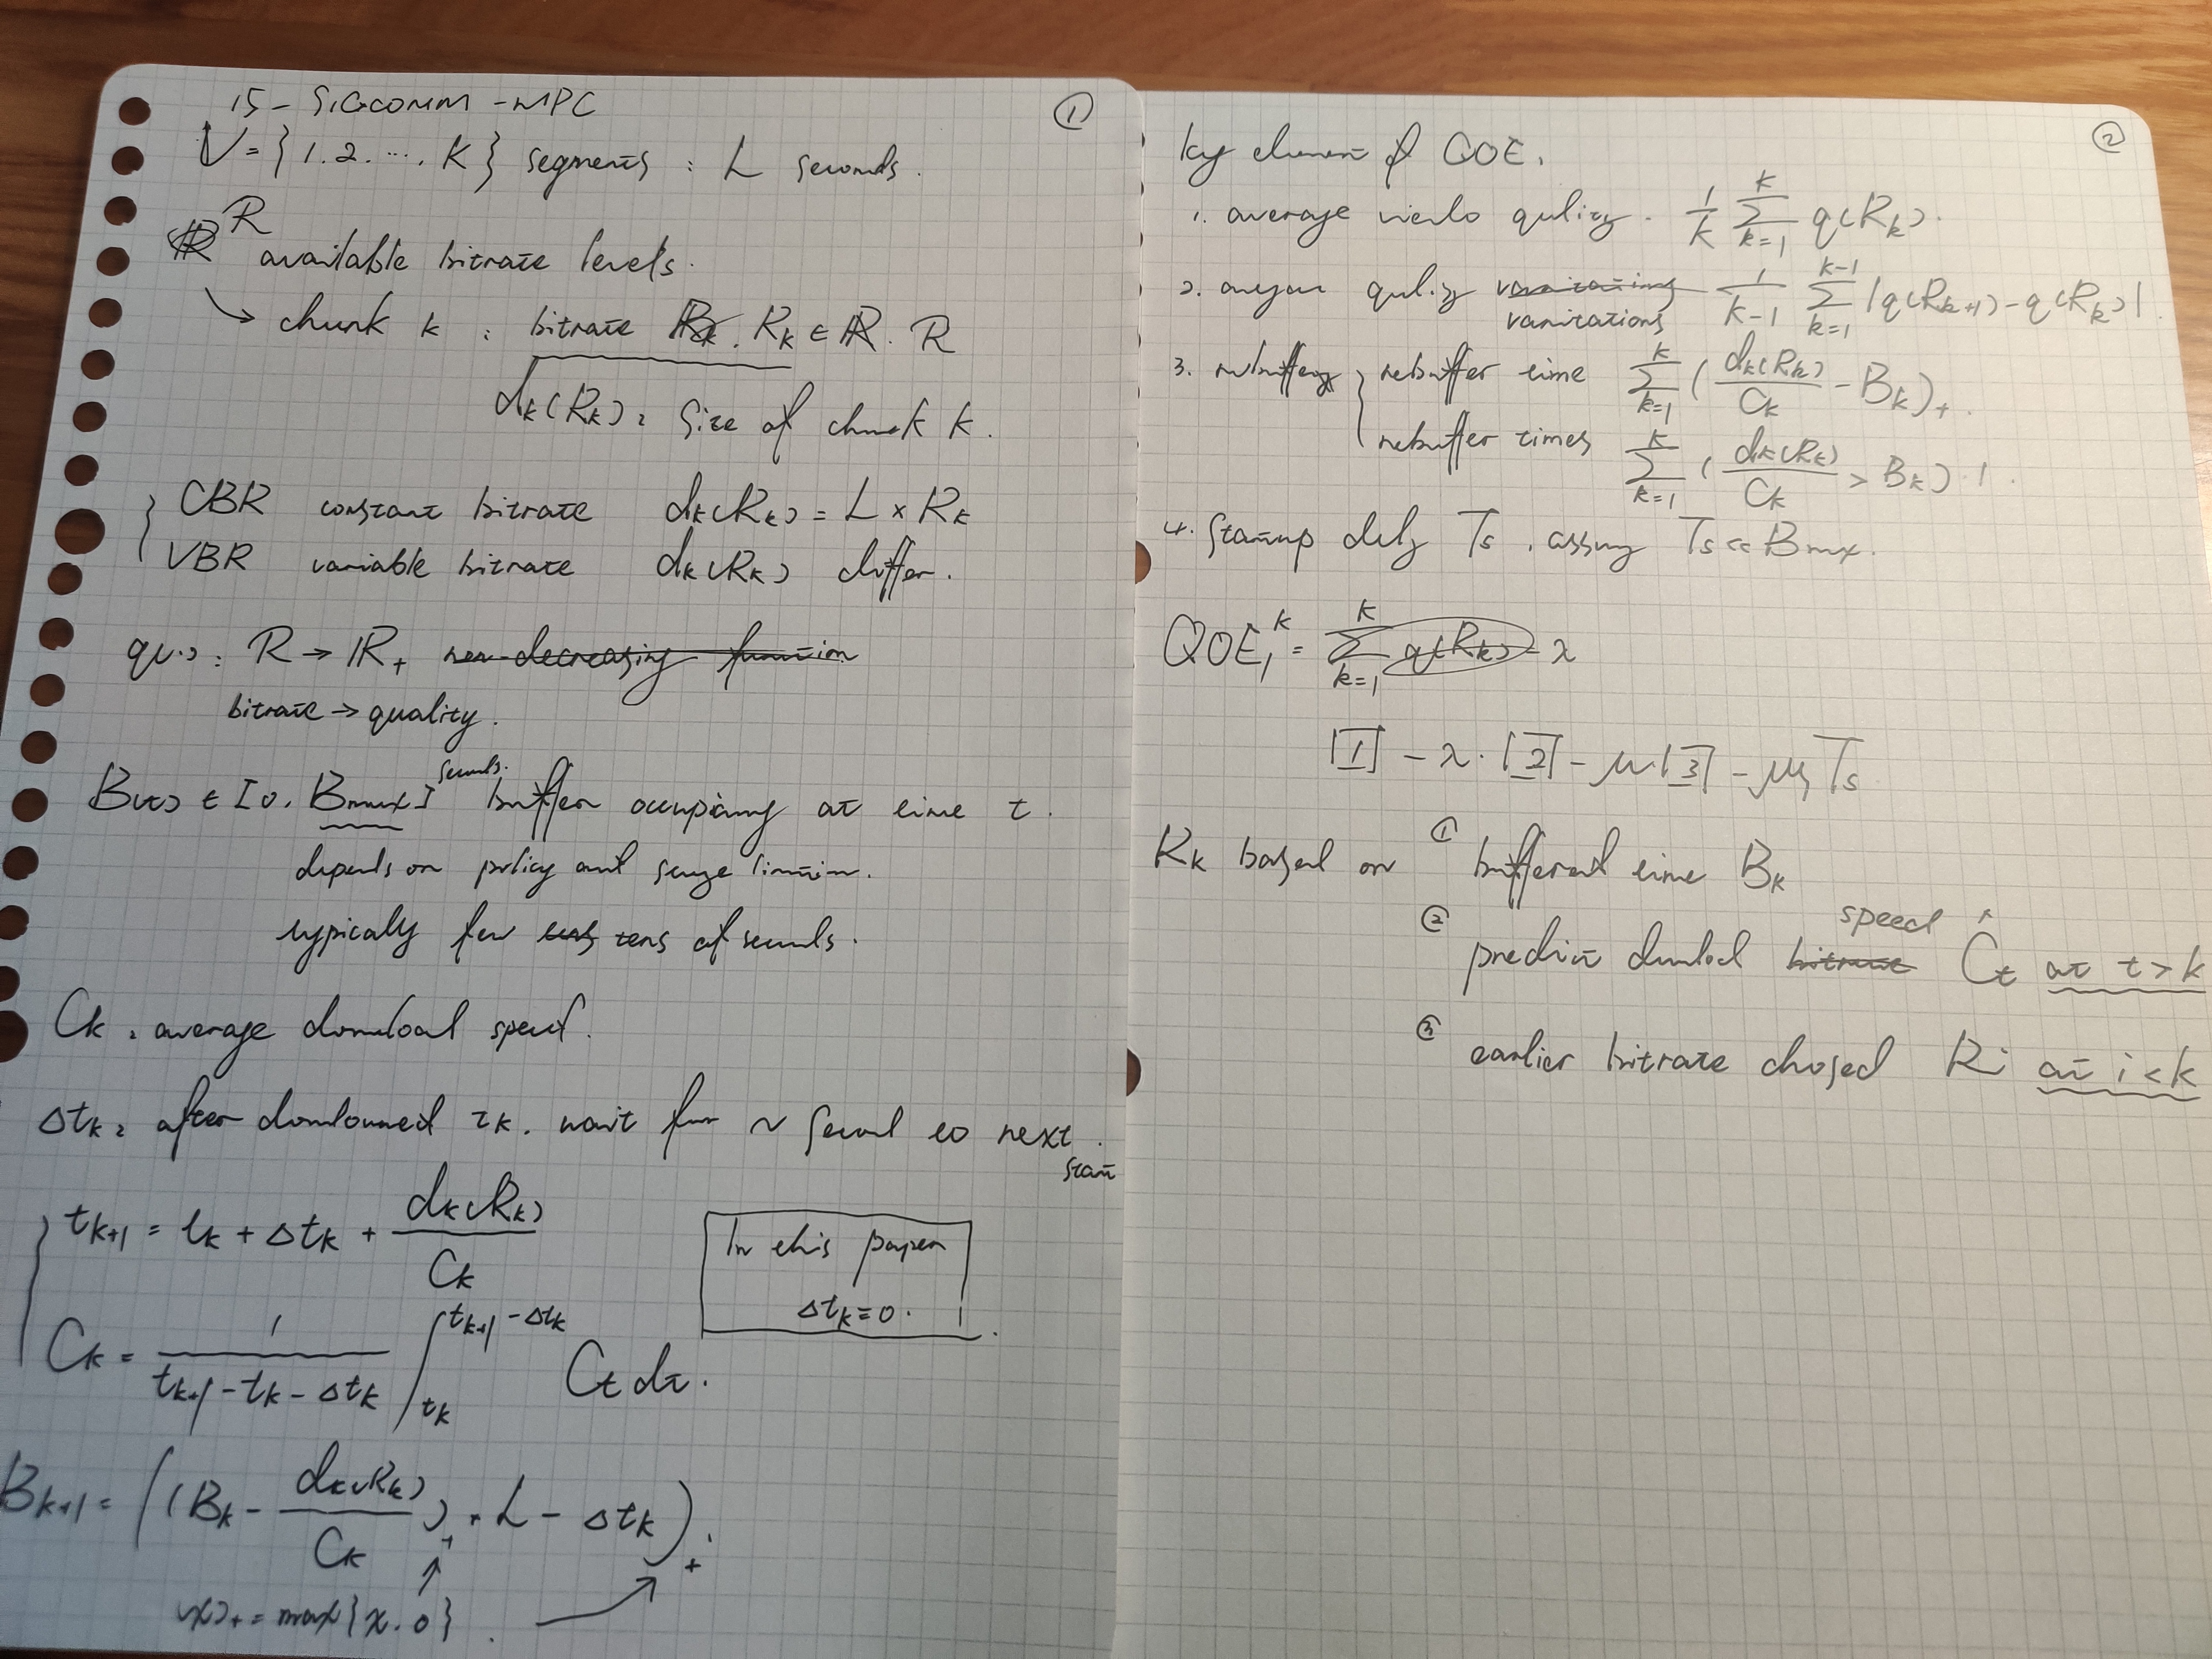 15 - SIGCOMM - MPC
①
V = {1.2. ..., K} segments : L seconds.
R
available bitrate levels.
↳ chunk k : bitrate R_k ∈ R
d_k(R_k) : size of chunk K.
{ CBR constant bitrate d_k(R_k) = L × R_k
VBR variable bitrate d_k(R_k) differ.
q(·) : R → ℝ₊ non-decreasing function
bitrate → quality.
B(t) ∈ [0, Bmax] seconds. buffer occupany at time t.
depends on policy and
typically few tens of seconds.
C_k : average download speed.
Δt_k : after t_k. wait for ~ second to next start.
{ t_{k+1} = t_k + Δt_k + d_k(R_k) / C_k
In this paper
Δt_k = 0. !
C_k = 1 / (t_{k+1} - t_k - Δt_k) ∫_{t_k}^{t_{k+1} - Δt_k} C_t dt.
B_{k+1} = ((B_k - d_k(R_k) / C_k)₊ + L - Δt_k)₊.
(x)₊ = max{x. 0}.
②
key element of QOE.
1. average 1/K Σ_{k=1}^{K} q(R_k).
2. variations 1/(K-1) Σ_{k=1}^{K-1} |q(R_{k+1}) - q(R_k)|.
3. { rebuffer time Σ_{k=1}^{K} (d_k(R_k) / C_k - B_k)₊.
rebuffer times Σ_{k=1}^{K} (d_k(R_k) / C_k > B_k) !.
4. Startup Ts, Ts << Bmax.
QOE₁^K = Σ_{k=1}^{K} q(R_k) - λ
[1] - λ·[2] - μ·[3] - μ_s Ts
R_k based on ① buffered time B_k
speed
② predict bitrate Ĉ_t at t > k
③ earlier bitrate chosed Ri at i < k